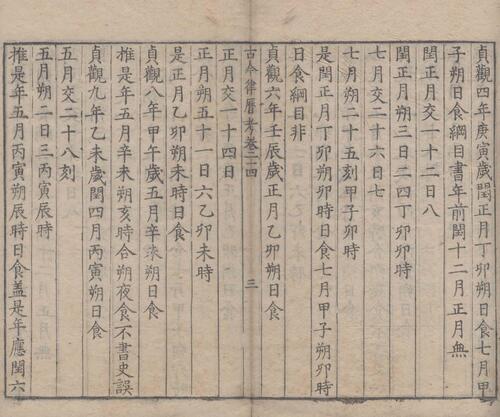 貞觀四年庚寅歲閏正月丁卯朔日食七月甲
子朔日食綱目書年前閏十二月正月無
閏正月交一十二日八
閏正月朔三日二四丁卯時
七月交二十六日七
七月朔二十五刻甲子卯時
是閏正月丁卯朔卯時日食七月甲子朔卯時
日食綱目非
貞觀六年壬辰歲正月乙卯朔日食
古今律曆考卷二四
三
正月交一十四日
正月朔五十一日六乙卯未時
是正月乙卯朔未時日食
貞觀八年甲午歲五月辛未朔日食
推是年五月辛未朔亥時合朔夜食不書史誤
貞觀九年乙未歲閏四月丙寅朔日食
五月交二十八刻
五月朔二日三丙寅辰時
推是年五月丙寅朔辰時日食蓋是年應閏六